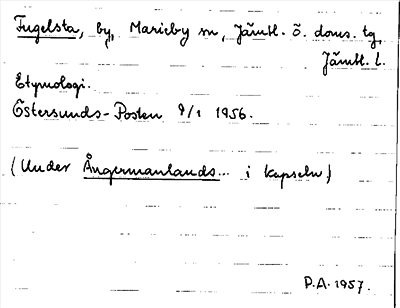 Fugelsta, by, Marieby sn, Jämtl. ö. doms. tg,
Jämtl. l.
Etymologi.
Östersunds-Posten 9/1 1956.
(Under Ångermanlands... i kapseln)
P.A. 1957.